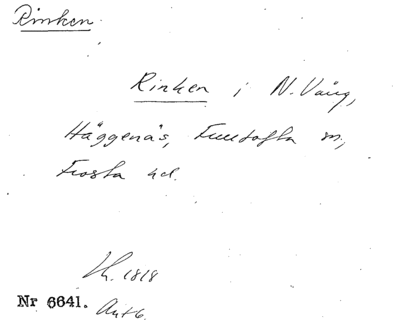 Rinken.
Rinken i N. Väng,
Häggenäs, Fulltofta sn,
Frosta hd.
Lk. 1818
Nr 6641. Akt 6.